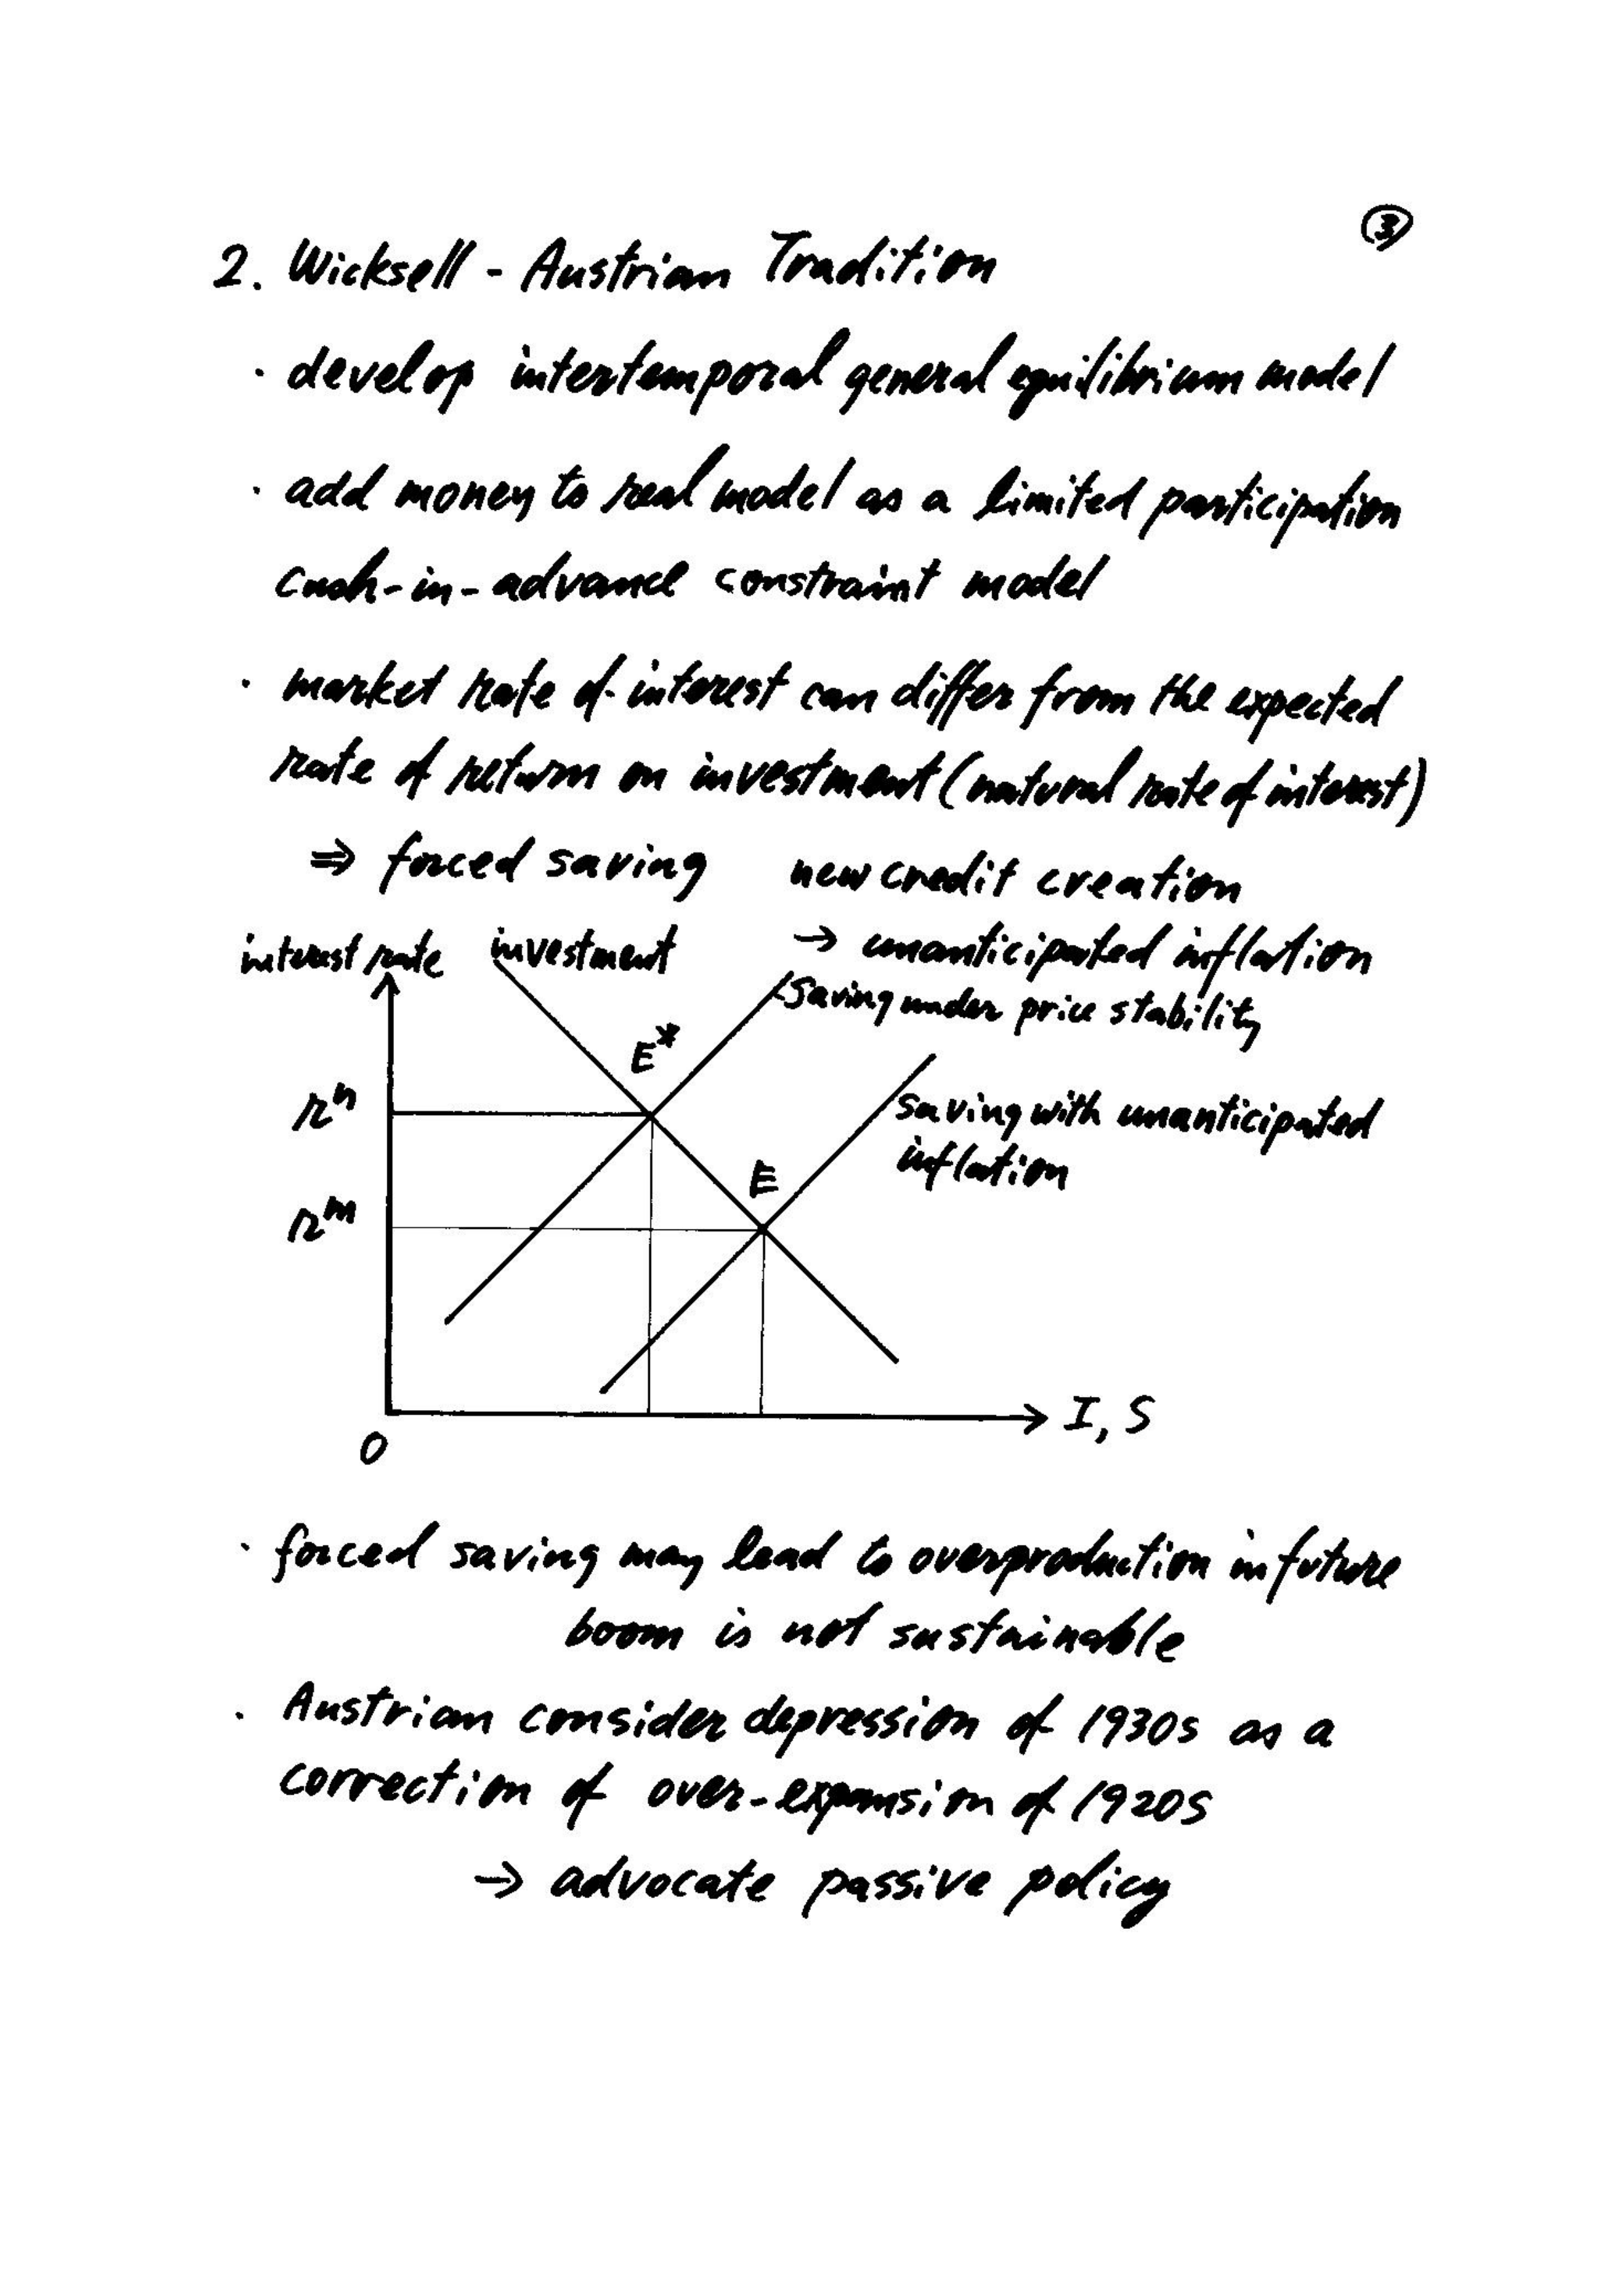 ③
2. Wicksell - Austrian Tradition
· develop intertemporal general equilibrium model
· add money to real model as a limited participation
cash-in-advance constraint model
· market rate of interest can differ from the expected
rate of return on investment (natural rate of interest)
⇒ forced saving
new credit creation
→ unanticipated inflation
interest rate
investment
saving under price stability
E*
rⁿ
saving with unanticipated
inflation
E
rᵐ
I, S
0
· forced saving may lead to overproduction in future
boom is not sustainable
· Austrian consider depression of 1930s as a
correction of over-expansion of 1920s
→ advocate passive policy